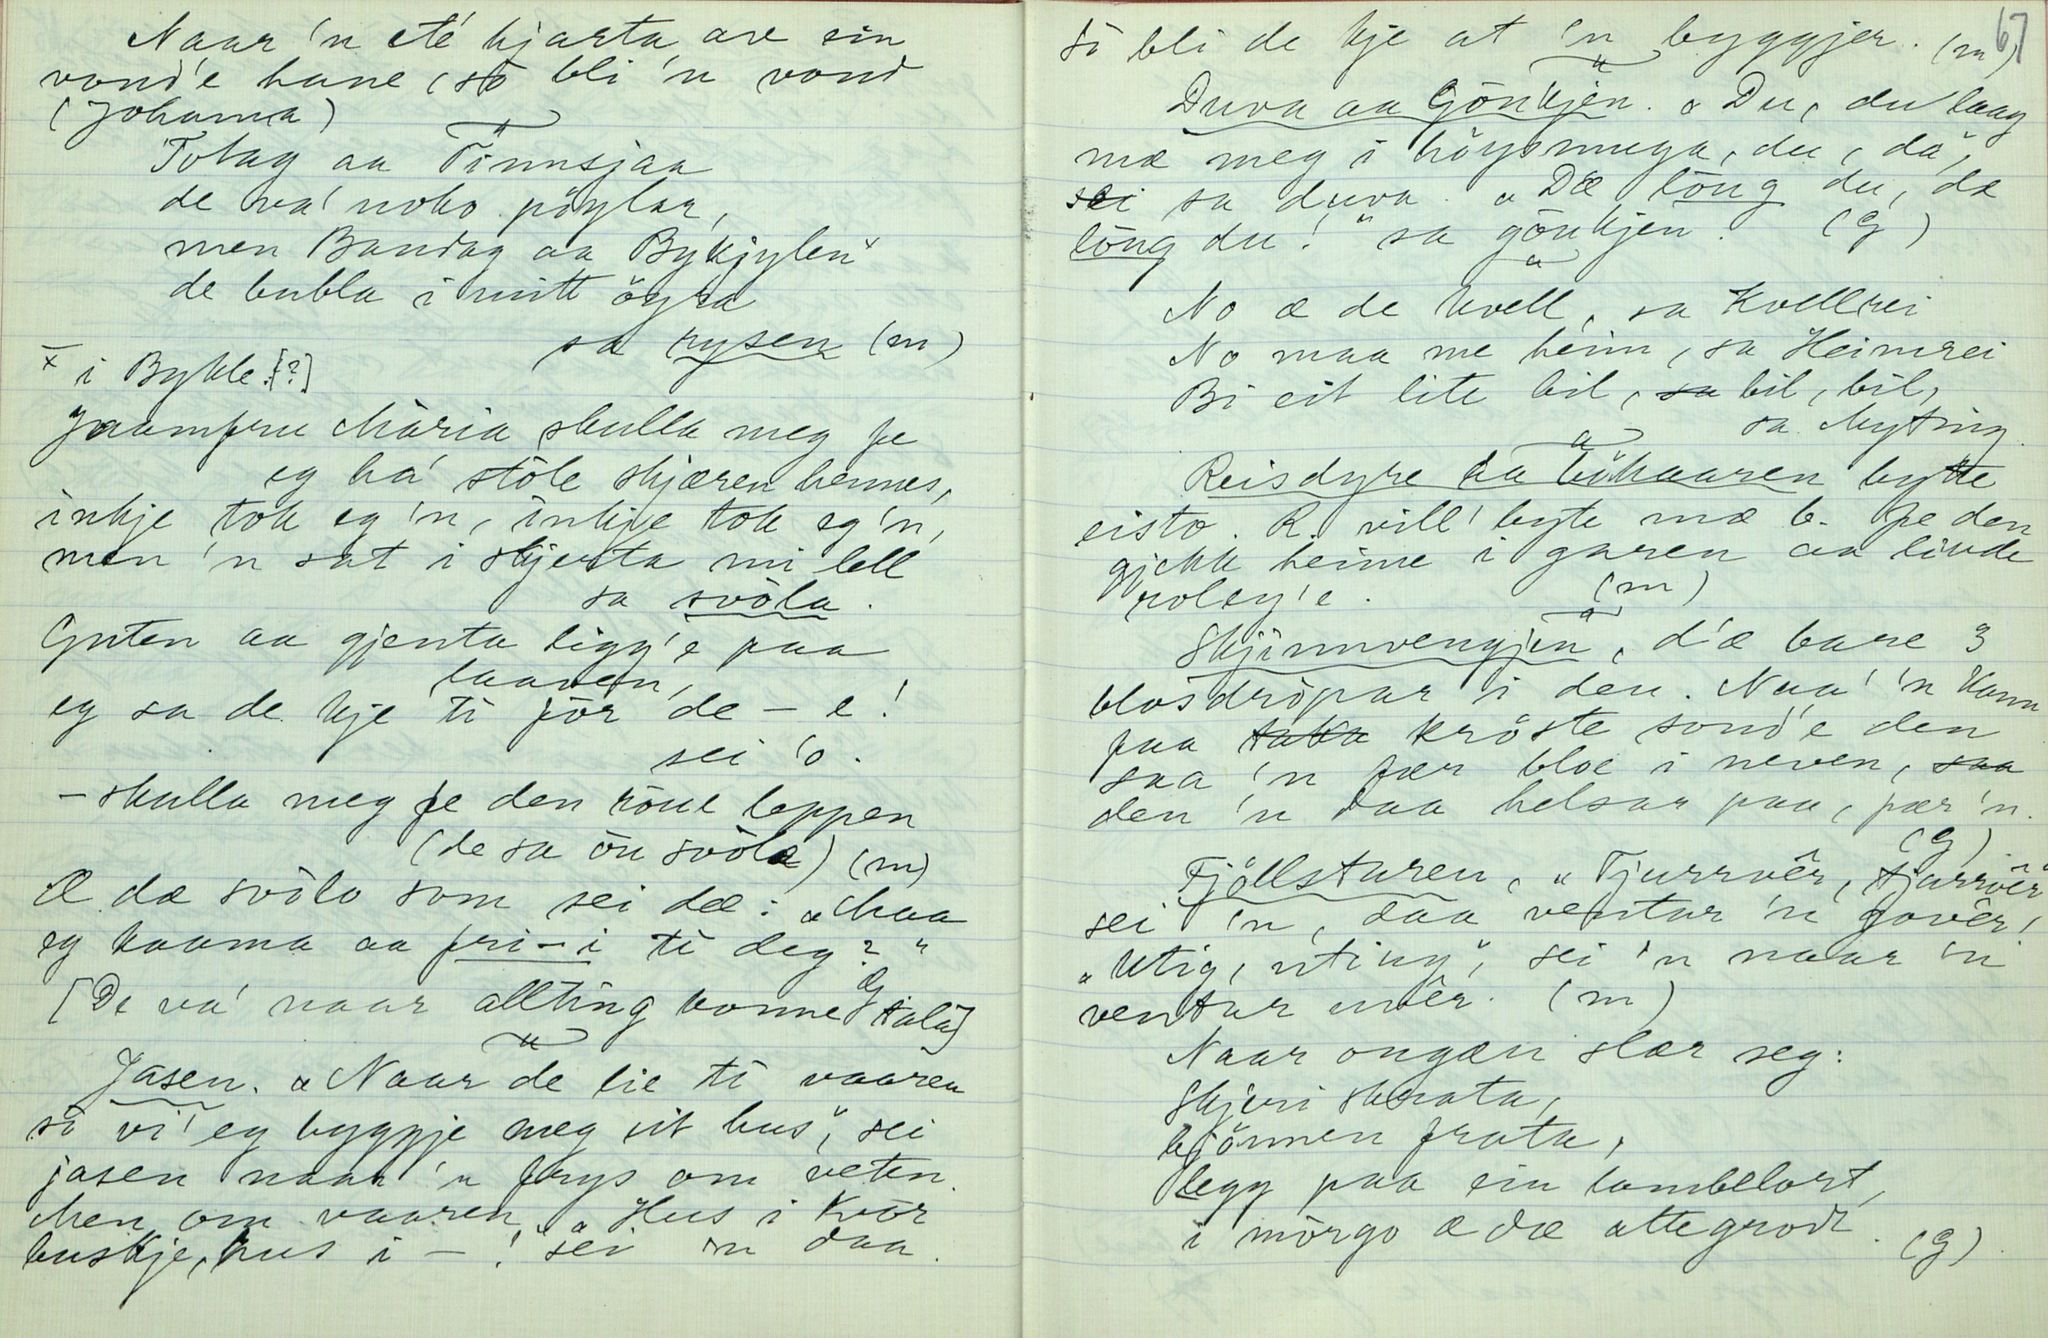 Naar 'n eté hjarta ave ein
vond'e hane, so bli 'n vond
(Johanna)
Tobag aa Tinnsjaa
de va' noko pöylar,
men Bandag aa Bykjylen x
de bubla i mitt öyra
sa rysen (m)
x i Bykle [?]
Jaamfru Maria skulla meg fe
eg ha' stole skjæren hennes,
inkje tok eg 'n, inkje tok eg 'n,
men 'n sat i skjorta mi lell
sa svòla.
Guten aa gjenta ligg'e paa
laaven,
eg sa de kje ti för de - e!
sei 'o.
- skulla meg fe den röue leppen
(de sa òu svòla) (m)
Æ dæ svòlo som sei dæ: "Maa
eg kaama aa fri-i ti deg?"
[De va' naar allting konne tala] G
Jasen. "Naar de lie ti vaaren
so vi' eg byggje meg eit hus", sei
jasen naar 'n frys om veten.
Men om vaaren, "Hus i kvòr
buskje, hus i - !" sei 'n daa.
67
So bli de kje at 'n byggjer. (m)
Duva aa Gönkjen. "Du, du laag
mæ meg i höysmuga, du, dà",
sei sa duva. "Dæ löng du, dæ
löng du!" sa gönkjen. (G)
No æ de kvell, sa Kvellrei
No maa me heim, sa Heimrei
Bi eit lite bil, sa bil, bil,
sa Myting.
Reisdyre aa bökaaren bytte
eisto. R. vill' byte mæ b. fe den
gjekk heime i garen aa livde
roleg'e. (m)
Skjinnvengjen, d'æ bare 3
blosdropar i den. Naa' 'n kann
faa taka kröste sond'e den
saa 'n fær bloe i neven, saa
den 'n daa helsar paa, fær 'n.
(G)
Fjöllsturen, "Tjurrvêr, tjurrvêr"
sei 'n, daa ventar 'n govêr,
"Utig, uting", sei 'n naar 'n
ventar uvêr. (m)
Naar ongæn slær seg:
Skjeri skrata,
bjönnen frata,
legg paa ein lambelort,
i mòrgo æ dæ attegrodt. (G)